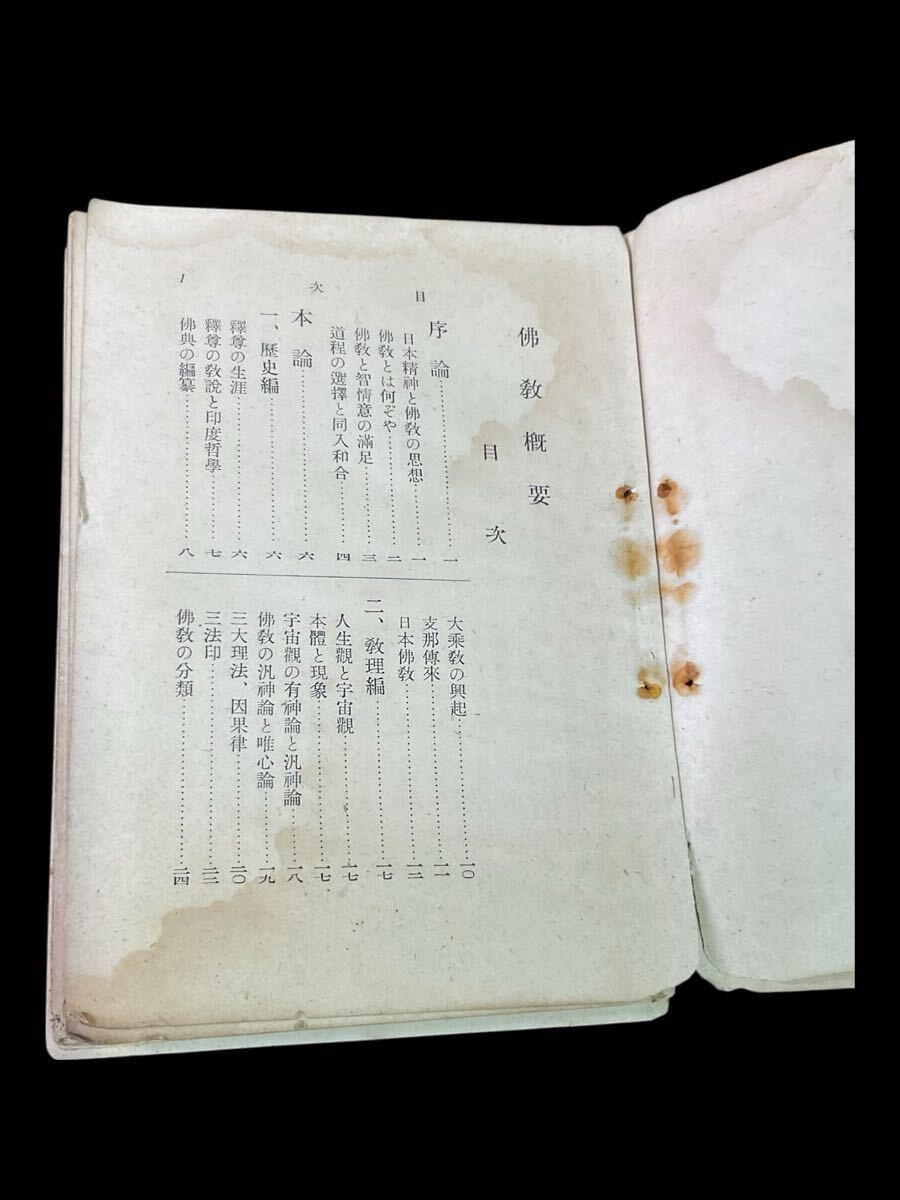 佛敎槪要
目次
序論……一
日本精神と佛敎の思想……一
佛敎とは何ぞや……二
佛敎と智情意の滿足……三
道程の選擇と同入和合……四
本論……六
一、歷史編……六
釋尊の生涯……六
釋尊の敎說と印度哲學……七
佛典の編纂……八
大乘敎の興起……一〇
支那傳來……一一
日本佛敎……一二
二、敎理編……一七
人生觀と宇宙觀……一七
本體と現象……一七
宇宙觀の有神論と汎神論……一八
佛敎の汎神論と唯心論……一九
三大理法、因果律……二〇
三法印……二二
佛敎の分類……二四
目次
1